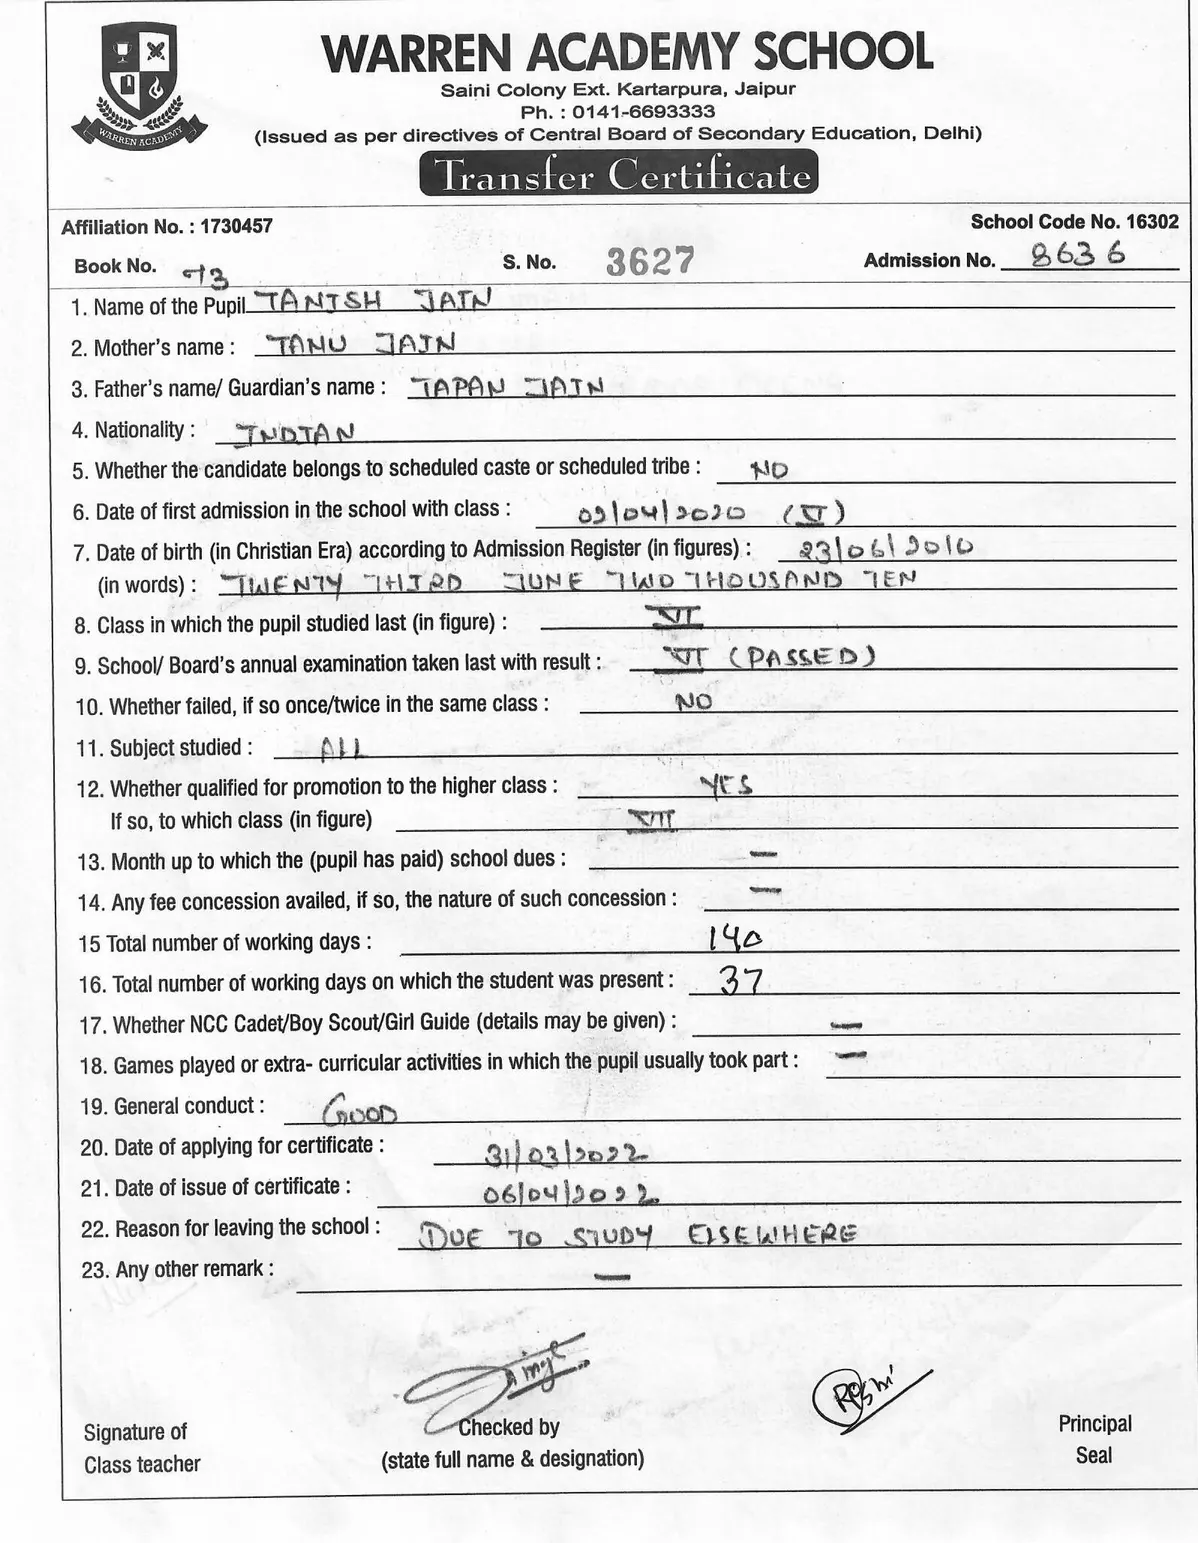 WARREN ACADEMY
WARREN ACADEMY SCHOOL
Saini Colony Ext. Kartarpura, Jaipur
Ph. : 0141-6693333
(Issued as per directives of Central Board of Secondary Education, Delhi)
Transfer Certificate
Affiliation No. : 1730457 School Code No. 16302
Book No. 73 S. No. 3627 Admission No. 8636
1. Name of the Pupil TANISH JAIN
2. Mother's name : TANU JAIN
3. Father's name/ Guardian's name : TAPAN JAIN
4. Nationality : INDIAN
5. Whether the candidate belongs to scheduled caste or scheduled tribe : NO
6. Date of first admission in the school with class : 09/04/2020 (V)
7. Date of birth (in Christian Era) according to Admission Register (in figures) : 23/06/2010
(in words) : TWENTY THIRD JUNE TWO THOUSAND TEN
8. Class in which the pupil studied last (in figure) : VI
9. School/ Board's annual examination taken last with result : VI (PASSED)
10. Whether failed, if so once/twice in the same class : NO
11. Subject studied : ALL
12. Whether qualified for promotion to the higher class : YES
If so, to which class (in figure) VII
13. Month up to which the (pupil has paid) school dues : —
14. Any fee concession availed, if so, the nature of such concession : —
15 Total number of working days : 140
16. Total number of working days on which the student was present : 37
17. Whether NCC Cadet/Boy Scout/Girl Guide (details may be given) : —
18. Games played or extra- curricular activities in which the pupil usually took part : —
19. General conduct : GOOD
20. Date of applying for certificate : 31/03/2022
21. Date of issue of certificate : 06/04/2022
22. Reason for leaving the school : DUE TO STUDY ELSEWHERE
23. Any other remark : —
Signature of Checked by Principal
Class teacher (state full name & designation) Seal